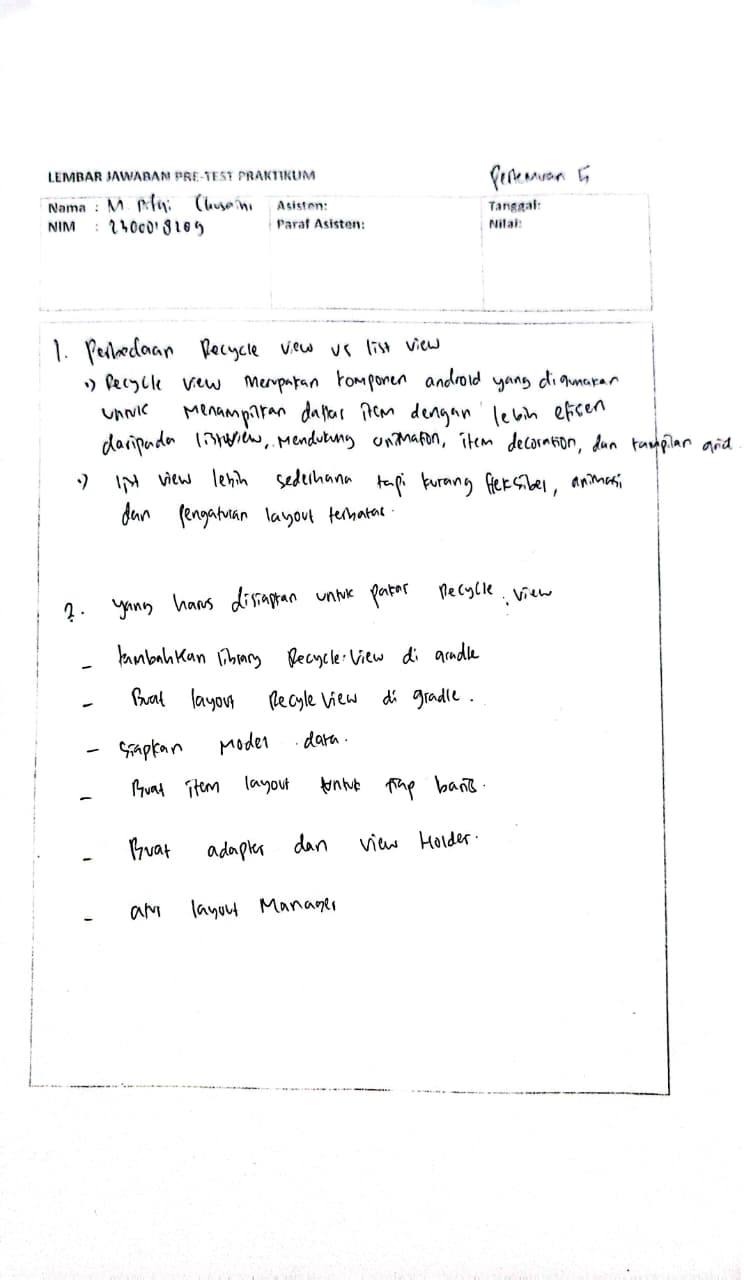 LEMBAR JAWABAN PRE-TEST PRAKTIKUM
Pertemuan 5
Nama : M. Chusaini
Asisten:
Tanggal:
NIM : 2300018169
Paraf Asisten:
Nilai:
1. Perbedaan Recycle view vs list view
•) Recycle view merupakan komponen android yang digunakan
untuk menampilkan daftar item dengan lebih efisen
daripada listview, mendukung animation, item decoration, dan tampilan grid.
•) list view lebih sederhana tapi kurang fleksibel, animasi
dan pengaturan layout terbatas.
2. yang harus disiapkan untuk pakai Recycle view
- tambahkan library Recycle.View di gradle
- Buat layout Recyle View di gradle.
- Siapkan model data.
- Buat item layout untuk tiap baris.
- Buat adapter dan view Holder.
- atur layout Manager